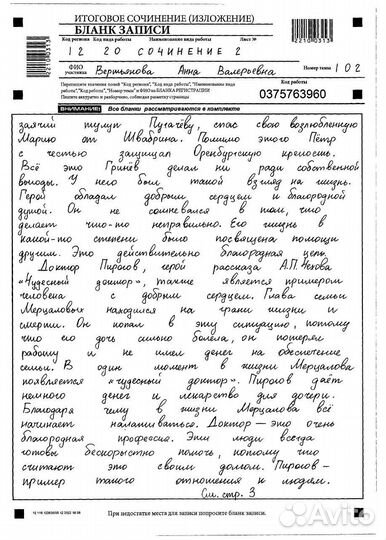 ИТОГОВОЕ СОЧИНЕНИЕ (ИЗЛОЖЕНИЕ)
БЛАНК ЗАПИСИ
Код региона Код вида работы Наименование вида работы Лист №
12 20 СОЧИНЕНИЕ 2
ФИО участника Вертьянова Анна Валерьевна Номер темы 102
Перепишите значения полей "Код региона", "Код вида работы", "Наименование вида
работы", "Номер темы" и ФИО из БЛАНКА РЕГИСТРАЦИИ
Пишите аккуратно и разборчиво, соблюдая разметку страницы
0375763960
ВНИМАНИЕ! Все бланки рассматриваются в комплекте
заячий тулуп Пугачёву, спас свою возлюбленную
Марию от Швабрина. Помимо этого Пётр
с честью защищал Оренбургскую крепость.
Всё это Гринёв делал ни ради собственной
выгоды. У него был такой взгляд на жизнь.
Герой обладал добрым сердцем и благородной
душой. Он не сомневался в том, что
делает что-то неправильно. Его жизнь в
какой-то степени была посвящена помощи
другим. Это действительно благородная цель.
Доктор Пирогов, герой рассказа А.П.Чехова
«Чудесный доктор», также является примером
человека с добрым сердцем. Глава семьи
Мерцаловых находился на грани жизни и
смерти. Он попал в эту ситуацию, потому
что его дочь сильно болела, он потерял
работу и не имел денег на обеспечение
семьи. В один момент в жизни Мерцалова
появляется «чудесный доктор». Пирогов даёт
немного денег и лекарство для дочери.
Благодаря чему в жизни Мерцалова всё
начинает налаживаться. Доктор – это очень
благородная профессия. Эти люди всегда
готовы бескорыстно помочь, потому что
считают это своим долгом. Пирогов –
пример такого отношения к людям.
См. стр. 3
При недостатке места для записи попросите бланк записи.
Avito